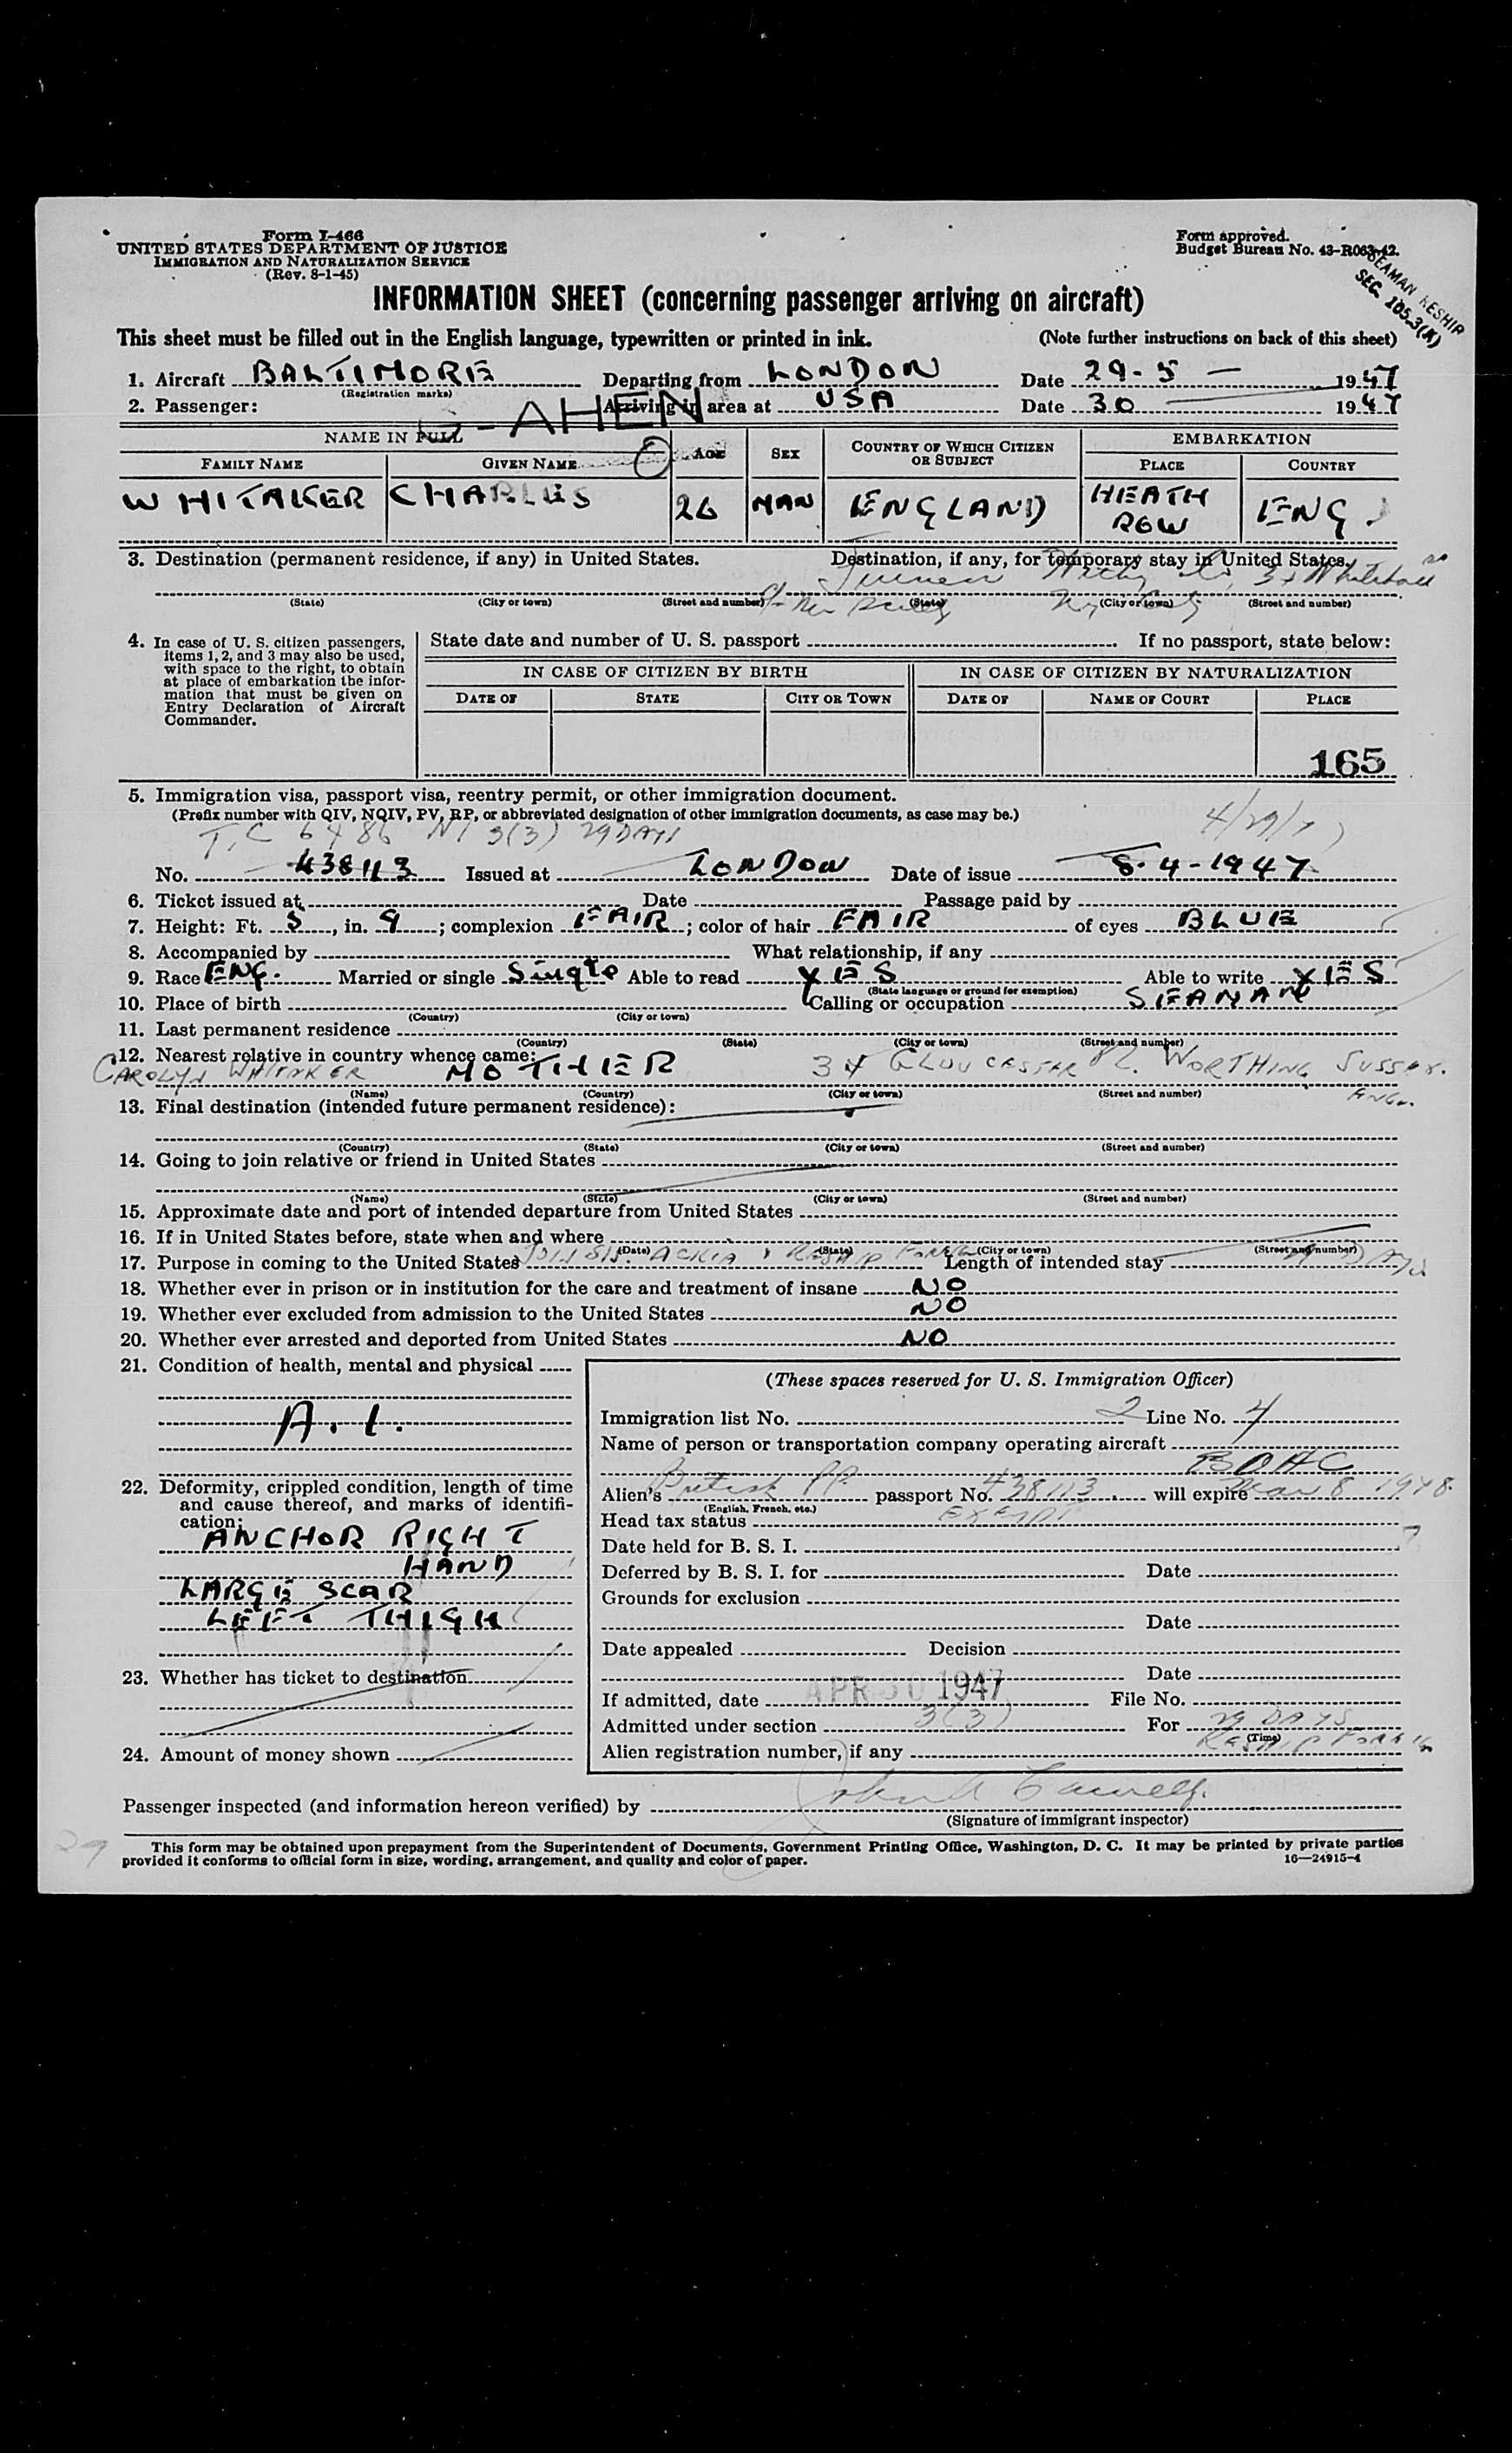 Form I-466
UNITED STATES DEPARTMENT OF JUSTICE
IMMIGRATION AND NATURALIZATION SERVICE
(Rev. 8-1-45)
Form approved.
Budget Bureau No. 43-R063-42.
SEAMAN RESHIP
SEC. 105.3(A)
INFORMATION SHEET (concerning passenger arriving on aircraft)
This sheet must be filled out in the English language, typewritten or printed in ink. (Note further instructions on back of this sheet)
1. Aircraft BALTIMORE Departing from LONDON Date 29-5- 1947
(Registration marks)
2. Passenger: Arriving in area at USA Date 30 1947
G-AHEN
NAME IN FULL AGE SEX COUNTRY OF WHICH CITIZEN OR SUBJECT EMBARKATION
FAMILY NAME GIVEN NAME PLACE COUNTRY
WHITAKER CHARLES 26 MAN ENGLAND HEATH ROW ENG
3. Destination (permanent residence, if any) in United States. Destination, if any, for temporary stay in United States.
(State) (City or town) (Street and number) (State) (City or town) (Street and number)
4. In case of U. S. citizen passengers, items 1, 2, and 3 may also be used, with space to the right, to obtain at place of embarkation the information that must be given on Entry Declaration of Aircraft Commander.
State date and number of U. S. passport If no passport, state below:
IN CASE OF CITIZEN BY BIRTH IN CASE OF CITIZEN BY NATURALIZATION
DATE OF STATE CITY OR TOWN DATE OF NAME OF COURT PLACE
165
5. Immigration visa, passport visa, reentry permit, or other immigration document.
(Prefix number with QIV, NQIV, PV, RP, or abbreviated designation of other immigration documents, as case may be.)
T.C 6486 NI 3(3) 29 DAYS 4/29/47
No. 438113 Issued at LONDON Date of issue 8-4-1947
6. Ticket issued at Date Passage paid by
7. Height: Ft. 5, in. 9; complexion FAIR; color of hair FAIR of eyes BLUE
8. Accompanied by What relationship, if any
9. Race ENG. Married or single Single Able to read YES Able to write YES
(State language or ground for exemption)
10. Place of birth Calling or occupation SEAMAN
(Country) (City or town)
11. Last permanent residence
(Country) (State) (City or town) (Street and number)
12. Nearest relative in country whence came:
CAROLYN WHITAKER MOTHER 34 GLOUCESTER PL. WORTHING SUSSEX.
ENG.
(Name) (Country) (City or town) (Street and number)
13. Final destination (intended future permanent residence):
(Country) (State) (City or town) (Street and number)
14. Going to join relative or friend in United States
(Name) (State) (City or town) (Street and number)
15. Approximate date and port of intended departure from United States
16. If in United States before, state when and where
(Date) (State) (City or town) (Street and number)
17. Purpose in coming to the United States JOIN SS. ACKIA & RESHIP FOREIGN Length of intended stay
18. Whether ever in prison or in institution for the care and treatment of insane NO
19. Whether ever excluded from admission to the United States NO
20. Whether ever arrested and deported from United States NO
21. Condition of health, mental and physical
A.1.
22. Deformity, crippled condition, length of time and cause thereof, and marks of identification:
ANCHOR RIGHT
HAND
LARGE SCAR
LEFT THIGH
23. Whether has ticket to destination
24. Amount of money shown
(These spaces reserved for U. S. Immigration Officer)
Immigration list No. 2 Line No. 4
Name of person or transportation company operating aircraft
BOAC
Alien's British PP. passport No. 438113 will expire Mar 8 1948.
(English, French, etc.)
Head tax status EXEMPT
Date held for B. S. I.
Deferred by B. S. I. for Date
Grounds for exclusion
Date
Date appealed Decision
Date
If admitted, date APR 30 1947 File No.
Admitted under section 3(3) For 29 DAYS
(Time)
RESHIP FOREIGN
Alien registration number, if any
Passenger inspected (and information hereon verified) by
(Signature of immigrant inspector)
29
This form may be obtained upon prepayment from the Superintendent of Documents, Government Printing Office, Washington, D. C. It may be printed by private parties
provided it conforms to official form in size, wording, arrangement, and quality and color of paper.
16—24915-4